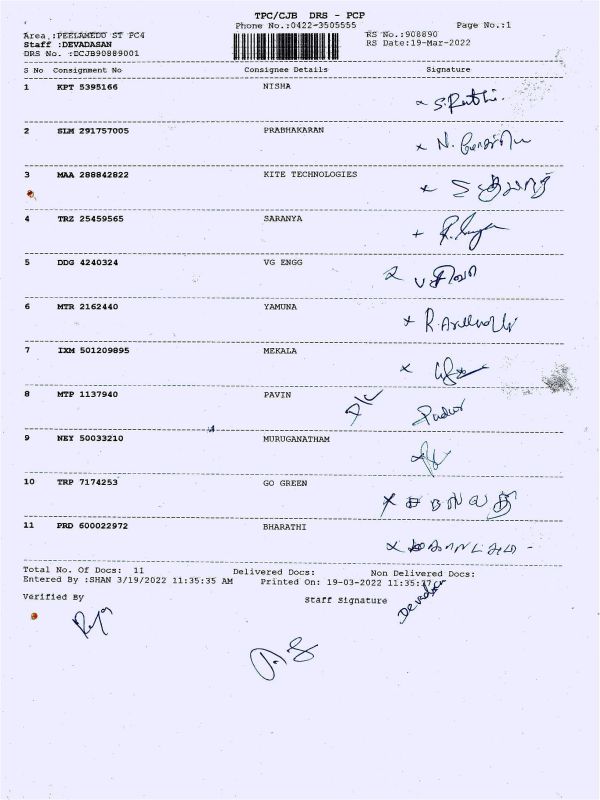 TPC/CJB DRS - PCP
Phone No.:0422-3505555 Page No.:1
Area :PEELAMEDO ST PC4 RS No.:908890
Staff :DEVADASAN RS Date:19-Mar-2022
DRS No. :DCJB90889001
S No Consignment No Consignee Details Signature
1 KPT 5395166 NISHA
2 SLM 291757005 PRABHAKARAN
3 MAA 288842822 KITE TECHNOLOGIES
4 TRZ 25459565 SARANYA
5 DDG 4240324 VG ENGG
6 MTR 2162440 YAMUNA
7 IXM 501209895 MEKALA
8 MTP 1137940 PAVIN
9 NEY 50033210 MURUGANATHAM
10 TRP 7174253 GO GREEN
11 PRD 600022972 BHARATHI
Total No. Of Docs: 11 Delivered Docs: Non Delivered Docs:
Entered By :SHAN 3/19/2022 11:35:35 AM Printed On: 19-03-2022 11:35:37
Verified By Staff Signature